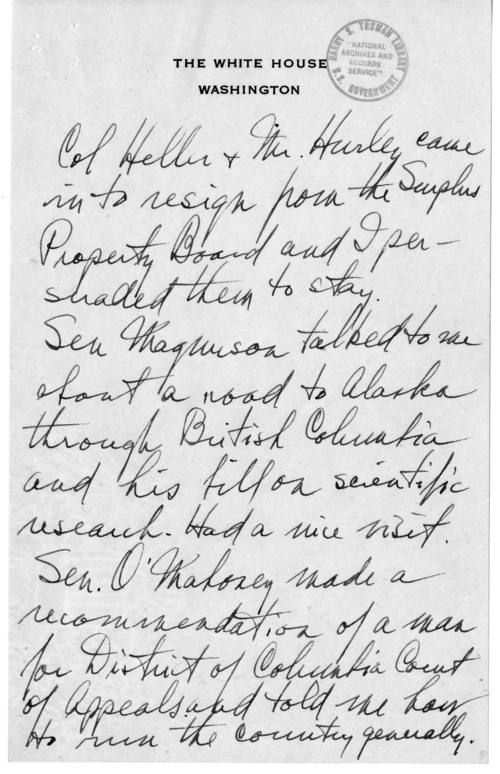 THE WHITE HOUSE
WASHINGTON
HARRY S. TRUMAN LIBRARY
"NATIONAL
ARCHIVES AND
RECORDS
SERVICE"
U.S. GOVERNMENT
Col Heller + Mr. Hurley came
in to resign from the Surplus
Property Board and I per-
suaded them to stay.
Sen Magnuson talked to me
about a road to Alaska
through British Columbia
and his bill on scientific
research. Had a nice visit.
Sen. O'Mahoney made a
recommendation of a man
for District of Columbia Court
of Appeals and told me how
to run the country generally.